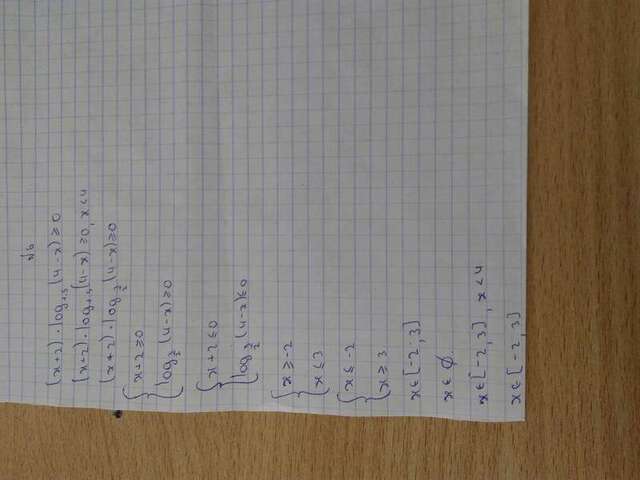 №6
(x+2)·log₁,₅(4-x)≥0
(x-2)·log₁,₅(4-x)≥0, x<4
(x+2)·log_{3/2}(4-x)≥0
{x+2≥0
{log_{3/2}(4-x)≥0
{x+2≤0
{log_{3/2}(4-x)≤0
{x≥-2
{x≤3
{x≤-2
{x≥3
x∈[-2;3]
x∈∅.
x∈[-2,3], x<4
x∈[-2,3]